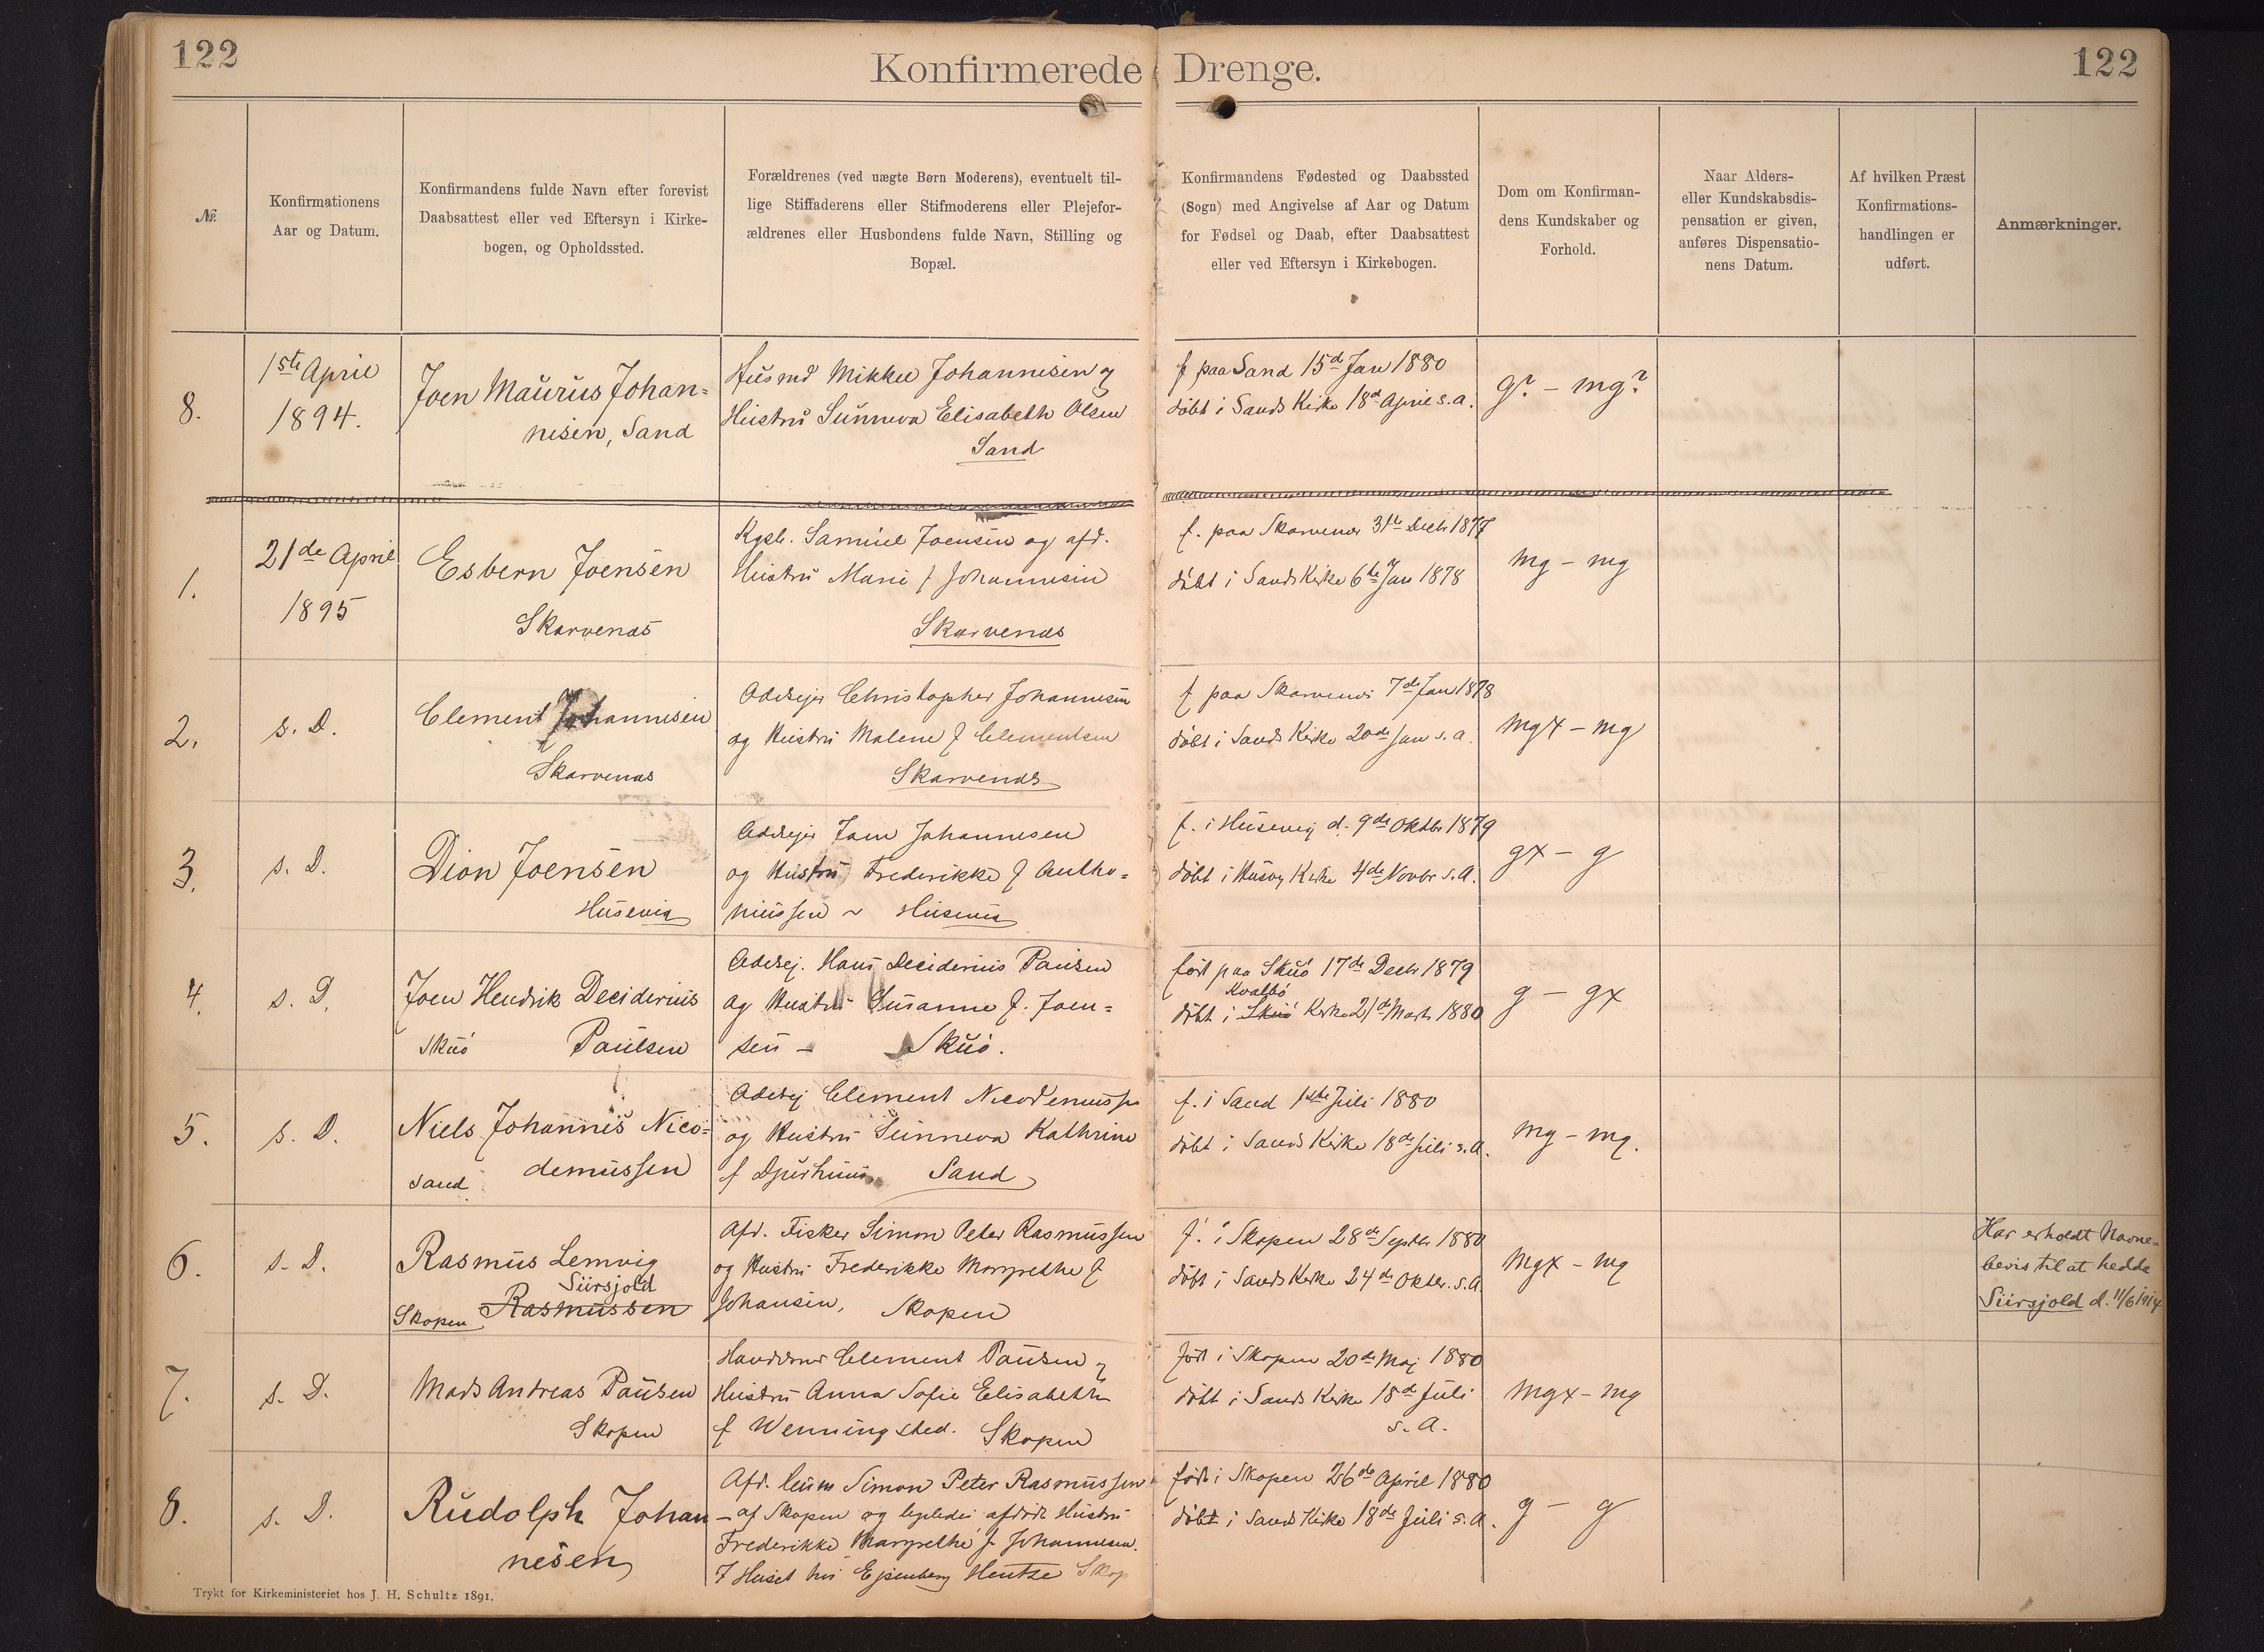 122
Konfirmerede Drenge.
122
№
Konfirmationens
Aar og Datum.
Konfirmandens fulde Navn efter forevist
Daabsattest eller ved Eftersyn i Kirke-
bogen, og Opholdssted.
Forældrenes (ved uægte Børn Moderens), eventuelt til-
lige Stiffaderens eller Stifmoderens eller Plejefor-
ældrenes eller Husbondens fulde Navn, Stilling og
Bopæl.
Konfirmandens Fødested og Daabssted
(Sogn) med Angivelse af Aar og Datum
for Fødsel og Daab, efter Daabsattest
eller ved Eftersyn i Kirkebogen.
Dom om Konfirman-
dens Kundskaber og
Forhold.
Naar Alders-
eller Kundskabsdis-
pensation er given,
anføres Dispensatio-
nens Datum.
Af hvilken Præst
Konfirmations-
handlingen er
udført.
Anmærkninger.
8.
1ste April
1894.
Joen Maurus Johan=
nesen, Sand
Husmd Mikkel Johannesen og
Hustru Sunneva Elisabeth Olsen
Sand
f paa Sand 15de Jan 1880
døbt i Sands Kirke 18de April s.a.
g? – mg?
1.
21de April
1895
Esbern Joensen
Skarvenæs
Kgsb. Samuel Joensen og afd.
Hustru Marie f Johannesen
Skarvenæs
f. paa Skarvenæs 31te Decbr 1877
døbt i Sands Kirke 6te Jan 1878
mg – mg
2.
s. D.
Clement Johannesen
Skarvenæs
Odelsejer Christopher Johannesen
og Hustru Malene f Clementsen
Skarvenæs
f paa Skarvenæs 7de Jan 1878
døbt i Sands Kirke 20de Jan s. a.
mgx – mg
3.
s. D.
Dion Joensen
Husevig
Odelsejer Joen Johannesen
og Hustru Frederikke f Antho=
niussen ~ Husevig
f. i Husevig d. 9de Oktbr 1879
døbt i Husevig Kirke 4de Novbr s. A.
gx – g
4.
s. D.
Joen Hendrik Deciderius
Skuø Paulsen
Odelsej. Hans Deciderius Paulsen
og Hustru Susanne f. Joen=
sen – Skuø.
født paa Skuø 17de Decbr 1879
Kvalbø
døbt i Skuø Kirke 21de Marts 1880
g – gx
5.
s. D.
Niels Johannes Nico=
Sand demussen
Odelsej Clement Nicodemussen
og Hustru Sunneva Kathrine
f Djurhuus. Sand
f. i Sand 1ste Juli 1880
døbt i Sands Kirke 18de Juli s. A.
mg – mg.
6.
s. D.
Rasmus Lemvig
Siirsjold
Skopen Rasmussen
Afd. Fisker Simon Peter Rasmussen
og Hustru Frederikke Margrethe f
Johansen, Skopen
f. i Skopen 28de Septbr 1880
døbt i Sands Kirke 24de Oktbr. s. A.
mgx – mg
Har erholdt Navne=
bevis til at hedde
Siirsjold d. 11/6 1914
7.
s. D.
Mads Andreas Paulsen
Skopen
Clement Paulsen og
Hustru Anna Sofie Elisabeth
f Wenningsted. Skopen
født i Skopen 20de Maj 1880
døbt i Sands Kirke 18de Juli
s. A.
mgx – mg
8.
s. D.
Rudolph Johan
nesen
Afd. Simon Peter Rasmussen
– af Skopen og afdøde Hustru
Frederikke Margrethe f. Johannesen.
I Huset hos Ejsenberg Hentze Skop
født i Skopen 26de April 1880
døbt i Sands Kirke 18de Juli s. A.
g – g
Trykt for Kirkeministeriet hos J. H. Schultz 1891.